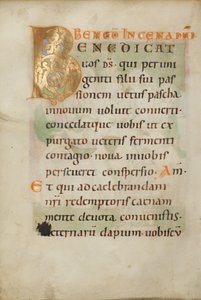 BENEDICAT
uos ds. qui per uni
geniti filii sui pas
sionem uetus pascha
innouum uoluit conuerti.
concedatque uobis ut ex
purgato ueteris fermenti
contagio. noua inuobis
perseueret conspersio. Am
Et qui ad caelebrandam
nri redemptoris caenam
mente deuota conuenistis.
aeternarū dapium uobiscū